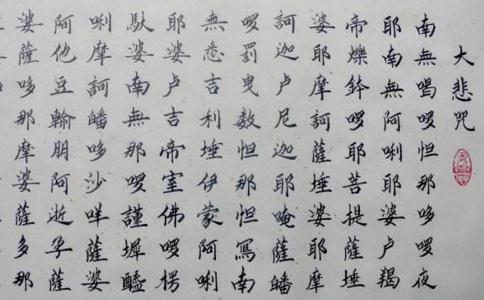 大悲咒
南無喝囉怛那哆囉夜
耶南無阿唎耶婆盧羯
帝爍鉢囉耶菩提薩埵
婆耶摩訶薩埵婆耶摩
訶迦盧尼迦耶唵薩皤
囉罰曳數怛那怛寫南
無悉吉利埵伊蒙阿唎
耶婆盧吉帝室佛囉楞
馱婆南無那囉謹墀醯
唎摩訶皤哆沙咩薩婆
阿他豆輸朋阿逝孕薩
婆薩哆那摩婆薩多那